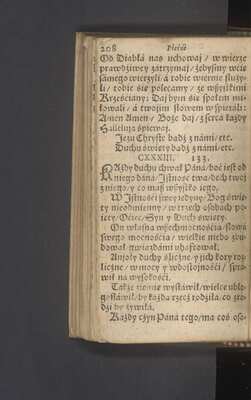 208 Pieśń
Od Diabłá nas uchoway / w wierze
prawdziwey zátrzymay / żebyśmy wćię
sámego wierzyli / á tobie wiernie służy-
li / tobie śie polecamy / ze wszytkimi
Krześćiany: Day bysm sie społem mi-
łowáli / á twoim słowem wspieráli:
Amen Amen / Boże day / z sercá káżdy
Hálleluja śpieway.
Jezu Chryste bądź z námi / etc.
Duchu święty bądź z námi / etc.
CXXXIII. 133.
KAżdy duchu chwal Páná / boć iest od
niego dáná / Jstność twa / duch twoy
z niego / y co masz wszytko iego.
W Jstnośći swey iedyny / Bog świę-
ty nieodmienny / w trzech osobách po-
Oćiec / Syn y Duch święty.
On własna wszechmocnośćia / słowá
swego mocnośćia / wielkie niebo zbu-
dował / gwiazdámi uháftował.
Anjoły duchy śliczne / y ich kory roz-
liczne / w mocy y wdostojnośći /
wił ná wysokośći.
Tákże ziemie wystáwił / wielce ubło-
gosłáwił / by káżda rzecz rodziłá / co zro-
dzi by żywiłá.
Káżdy czyń Páná tego / ma coś oso-